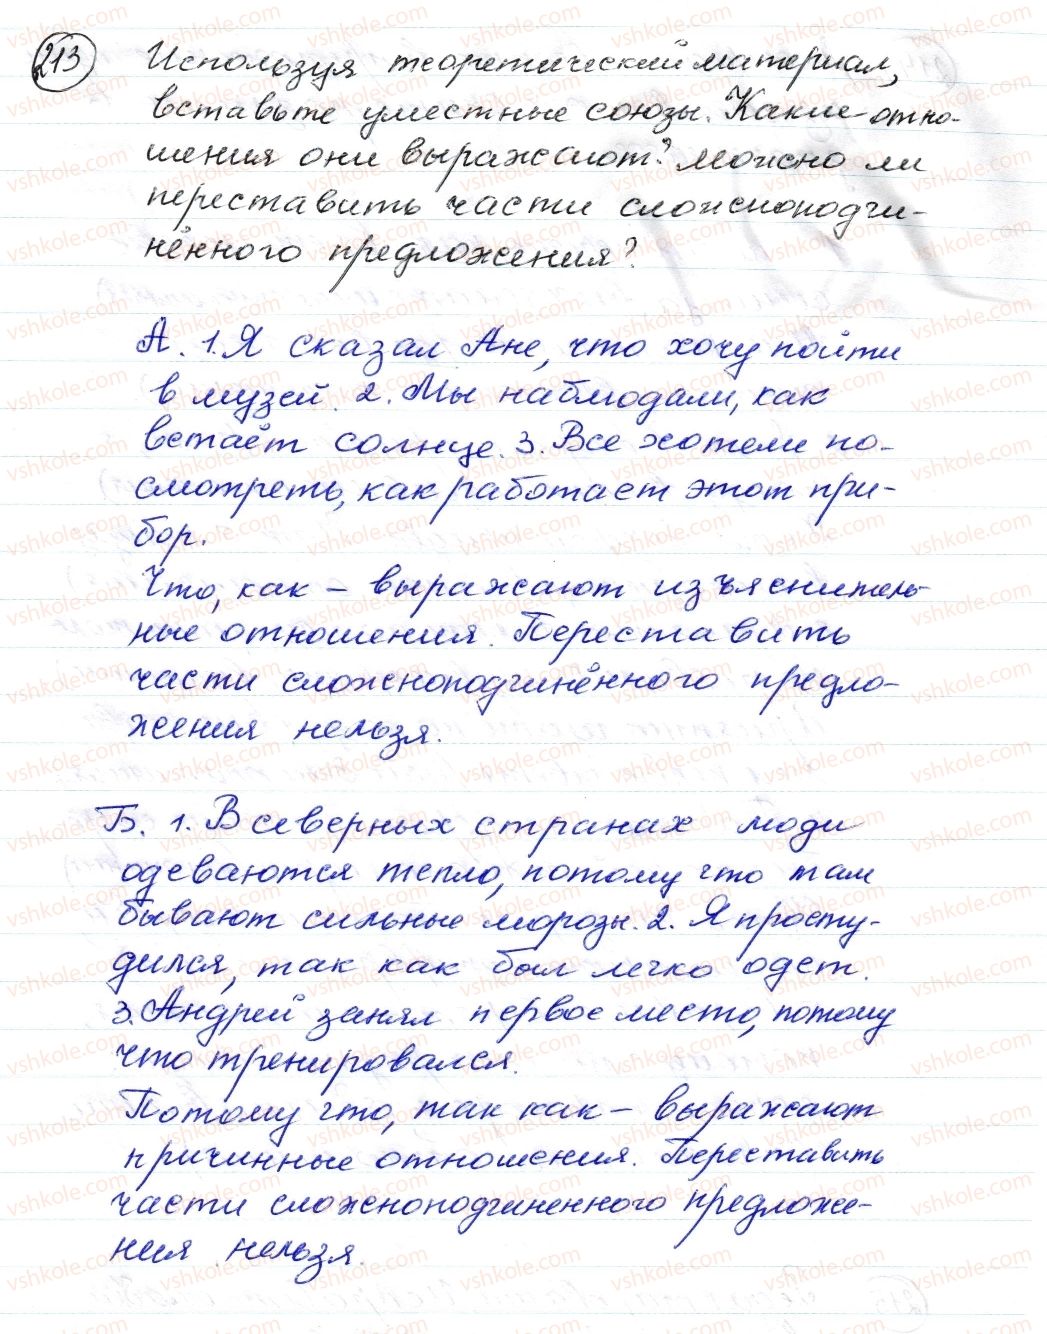 213 Используя теоретический материал,
вставьте уместные союзы. Какие отно-
шения они выражают? Можно ли
переставить части сложноподчи-
нённого предложения?
А. 1. Я сказал Ане, что хочу пойти
в музей. 2. Мы наблюдали, как
встаёт солнце. 3. Все хотели по-
смотреть, как работает этот при-
бор.
Что, как – выражают изъяснитель-
ные отношения. Переставить
части сложноподчинённого предло-
жения нельзя.
Б. 1. В северных странах люди
одеваются тепло, потому что там
бывают сильные морозы. 2. Я просту-
дился, так как был легко одет.
3. Андрей занял первое место, потому
что тренировался.
Потому что, так как – выражают
причинные отношения. Переставить
части сложноподчиненного предложе-
ния нельзя.